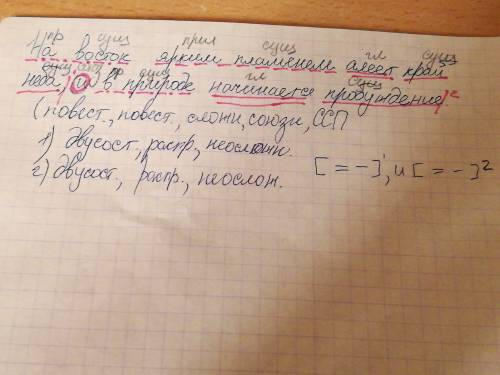 пр сущ прил сущ гл сущ
На восток ярким пламенем алеет край
сущ союз пр сущ гл сущ
неба, и в природе начинается пробуждение
(повест., повест, сложн, союзн, ССП
1) двусост, распр, неосложн.
2) двусост., распр., неослож. [ = - ]¹, и [ = - ]²